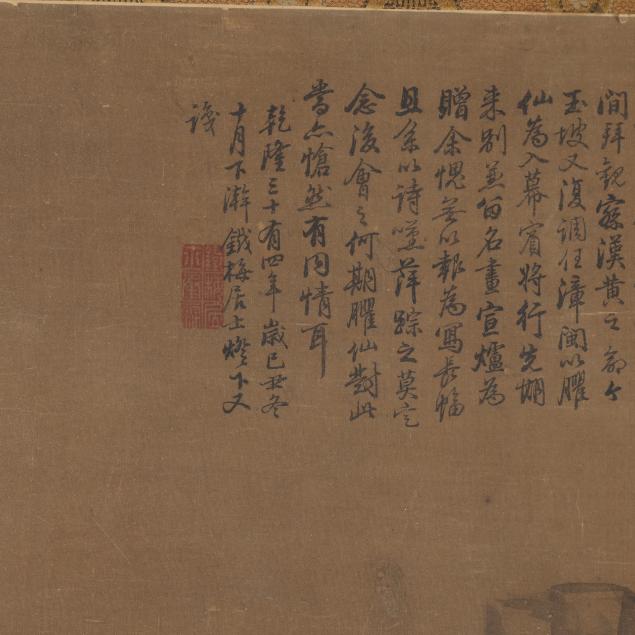 間拜觀察漢黃之命今
玉坡又復調任漳閩以臞
仙為入幕賓將行先期
来別並留名畫宣爐為
贈余愧無以報為寫長幅
且系以詩嘆萍踪之莫定
念後會之何期臞仙對此
當亦愴然有同情耳
乾隆三十有四年歲己丑冬
十月下澣鐵梅居士燈下又
識